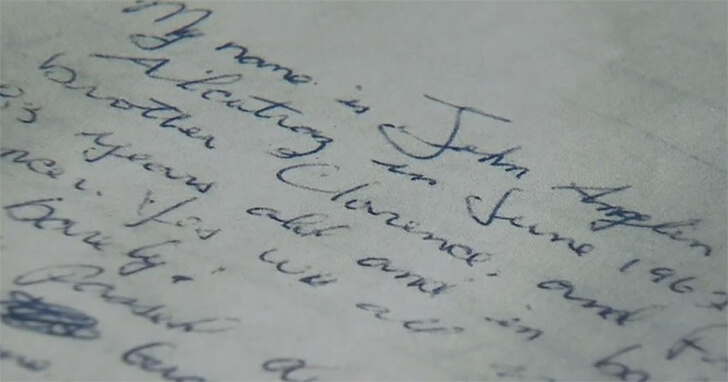 My name is John Anglin
Alcatraz in June 1962
brother Clarence, and
years old and in
Yes we all
barely!
Passed